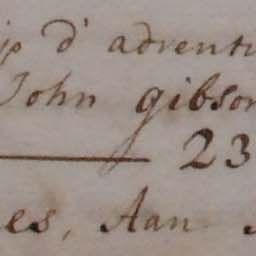 ip d' adventu
John gibson
23
es, Aan